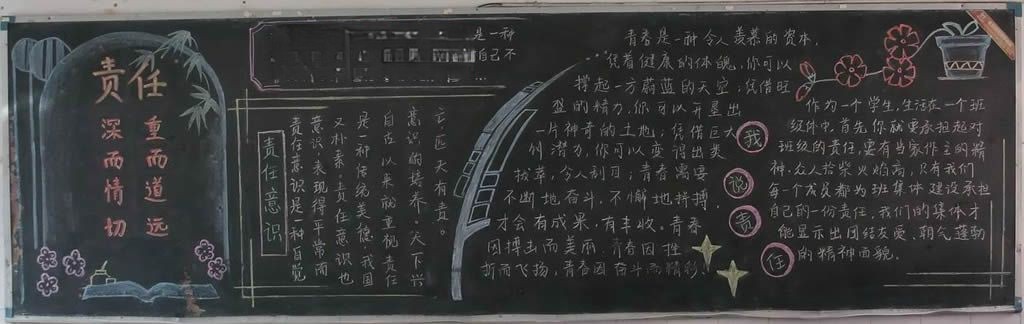 责任
重而道远
深而情切
是一种
自己不
责任意识
责任意识是一种自觉
意识,表现得平常而
又朴素。责任意识也
是一种传统美德,我国
自古以来就重视责任
意识的培养。天下兴
亡匹夫有责。
青春是一种令人羡慕的资本,
凭着健康的体魄,你可以
撑起一方蔚蓝的天空;凭借旺
盛的精力,你可以开垦出
一片神奇的土地;凭借巨大
的潜力,你可以变得出类
拔萃,令人刮目;青春需要
不断地奋斗,不懈地拼搏,
才会有成果,有丰收。青春
因搏击而美丽,青春因性
折而飞扬,青春因奋斗而精彩!
我说责任
作为一个学生,生活在一个班
级件中,首先,你就要承担起对
班级的责任,要有当家作主的精
神,众人拾柴火焰高,只有我们
每一个成员都为班集体建设承担
自己的一份责任,我们的集体才
能显示出团结友爱、朝气蓬勃
的精神面貌。